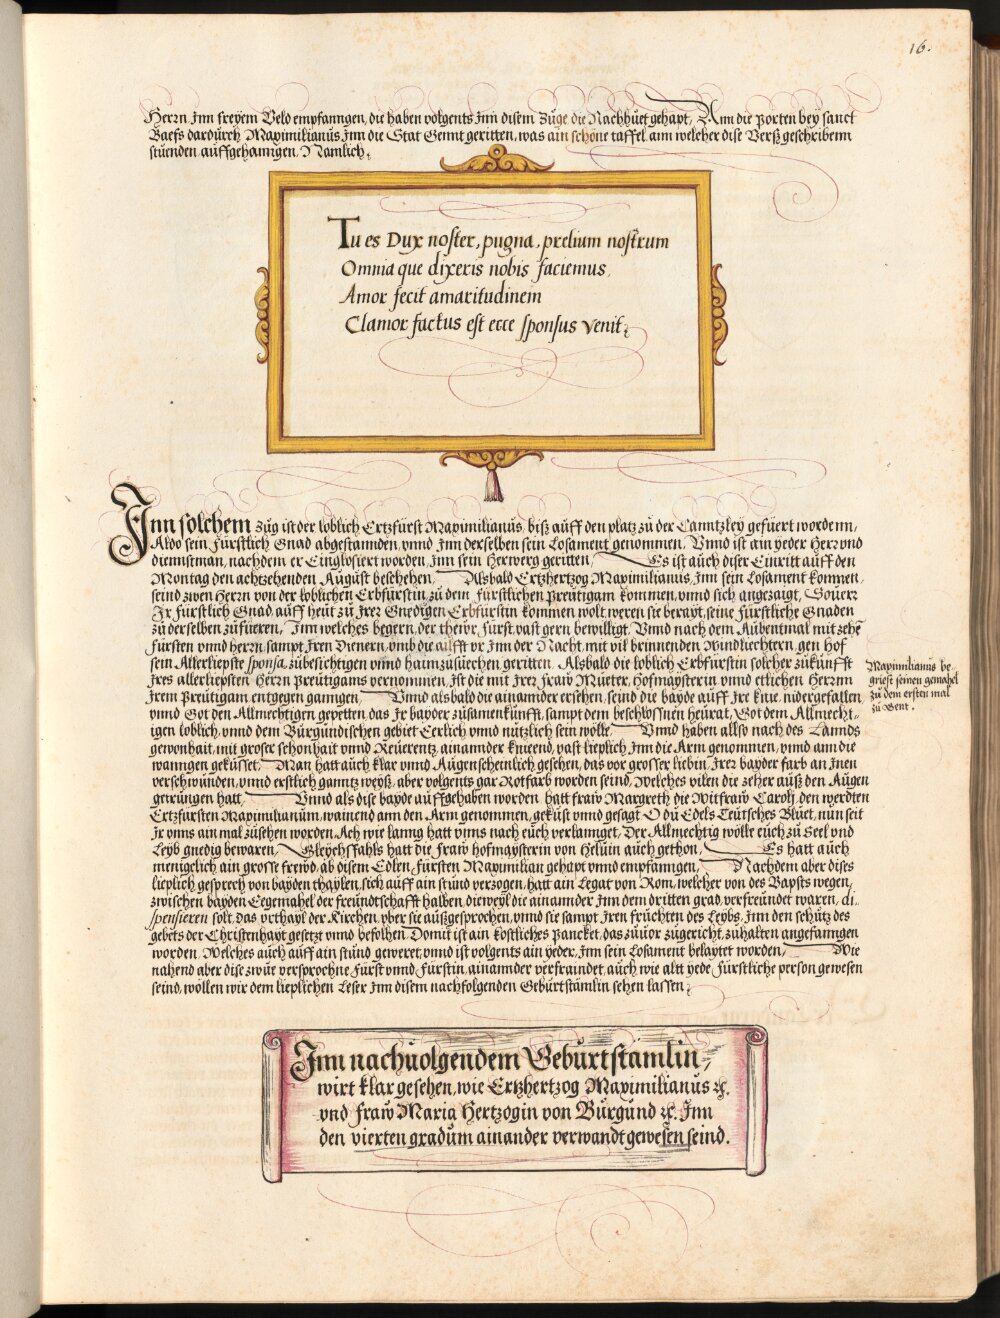 16.
Herrn Jnn freyem Veld empfanngen, die haben volgents Jnn disem Zuge die Nachhuet gehapt, Ann die Porten bey sanct
Baefs dardurch Maximilianus Jnn die Stat Gennt geritten, was ain schöne taffel ann welcher dise Verß geschribenn
stuenden auffgehanngen, Namlich,
Tu es Dux noster, pugna, prelium nostrum
Omnia que dixeris nobis faciemus,
Amor fecit amaritudinem
Clamor factus est ecce sponsus venit,
Jnn solchem Zug ist der loblich Ertzfürst Maximilianus, biß auff den platz zu der Canntzley gefüert wordenn,
Aldo sein Fürstlich Gnad abgestannden, vnnd Jnn derselben sein Losament genommen, Vnnd ist ain yeder Herr vnd
diennstman, nachdem er Einglosiert worden, Jnn sein Herwerg geritten, Es ist auch diser Einritt auff den
Montag den achtzehenden August beschehen, Alsbald Ertzhertzog Maximilianus, Jnn sein Losament kommen,
seind zwen Herrn von der loblichen Erbfürstin, zu dem Fürstlichen Preutigam kommen, vnnd sich angezaigt, Souerr
Jr Fürstlich Gnad, auff heut zu Jrer Gnedigen Erbfürstin kommen wolt, weren sie berayt, seine Fürstliche Gnaden
zu derselben zufueren, Jnn welches begern, der theẅr Fürst, vast gern bewilligt, Vnnd nach dem Aubentmal mit zehē
Fürsten vnnd herrn sampt Jren Dienern, vmb die ailfft vr Jnn der Nacht, mit vil brinnenden Windliechtern, gen Hof
sein Allerliepste sponsa, zubesichtigen vnnd haimzusuechen geritten, Alsbald die loblich Erbfürstin solcher zukunfft
Jres allerliepsten Herrn Preutigams vernommen, Jst die mit Jrer Fraẅ Mueter, Hofmaysterin vnnd etlichen Herrnn
Jrem Preutigam entgegen ganngen, Vnnd als bald die ainannder ersehen, seind die bayde auff Jre knie, nidergefallen,
vnnd Got den Allmechtigen gepetten, das Jr bayder zusamenkunfft, sampt dem beschloßnen heurat, Got dem Allmecht-
igen loblich, vnnd dem Burgundischen gebiet Eerlich vnnd nützlich sein wölle, Vnnd haben allso nach des Lannds
gewonhait, mit groser schonhait vnnd Reuerentz, ainannder knieend, vast lieplich Jnn die Arm genommen, vnnd ann die
wanngen geküsset, Man hatt auch klar vnnd Augenscheinlich gesehen, das vor grosser liebin, Jrer bayder farb an Jnen
verschwunden, vnnd erstlich ganntz weyß, aber volgents gar Rotfarb worden seind, Welches vilen die zeher auß den Augen
getrungen hatt, Vnnd als dise bayde auffgehaben worden, hatt fraẅ Margreth, die Witfraẅ Carolj, den werdten
Ertzfürsten Maximilianum, wainend ann den Arm genommen, geküst vnnd gesagt, O du Edels Teutsches Bluet, nun seit
Jr vnns ain mal zusehen worden, Ach wie lanng hatt vnns nach euch verlannget, Der Allmechtig wölle euch zu Seel vnd
Leyb gnedig bewaren, Gleychsfahls hatt die Fraẅ hofmaysterin von Helluin auch gethon, Es hatt auch
menigclich ain grosse frewd, ab disem Edlen, Fürsten Maximilian gehapt vnnd empfanngen, Nachdem aber dises
lieplich gesprech von bayden thaylen, sich auff ain stund verzogen, hatt ain Legat von Rom, welcher von des Bapsts wegen,
zwischen bayden Eegemahel der freundtschafft halben, dieweyl die ainannder Jnn dem dritten grad, verfreundet waren, di-
spensieren solt, das vrthayl der Kirchen, vber sie außgesprochen, vnnd sie sampt Jren früchten des Leybs, Jnn den schutz des
gebets der Christenhayt gesetzt vnnd befolhen, Domit ist ain kostliches Pancket, das zuuor zugericht, zuhalten angefanngen
worden, Welches auch auff ain stund geweret, vnnd ist volgents ain yeder, Jnn sein Losament belaytet worden, Wie
nahend aber dise zwai versprochne Fürst vnnd Fürstin, ainannder verfraindet, auch wie altt yede Fürstliche person gewesen
seind, wöllen wir dem lieplichen Leser Jnn disem nachfolgenden Geburtstämlin sehen lassen,
Maximilianus be-
griest seinen gemahel
zu dem ersten mal
zu Gent.
Jnn nachuolgendem Geburtstämlin,
wirt klar gesehen, wie Ertzhertzog Maximilianus ꝛc.
vnd Fraẅ Maria Hertzogin von Burgund ꝛc. Jnn
den vierten gradum ainander verwandt gewesen seind.